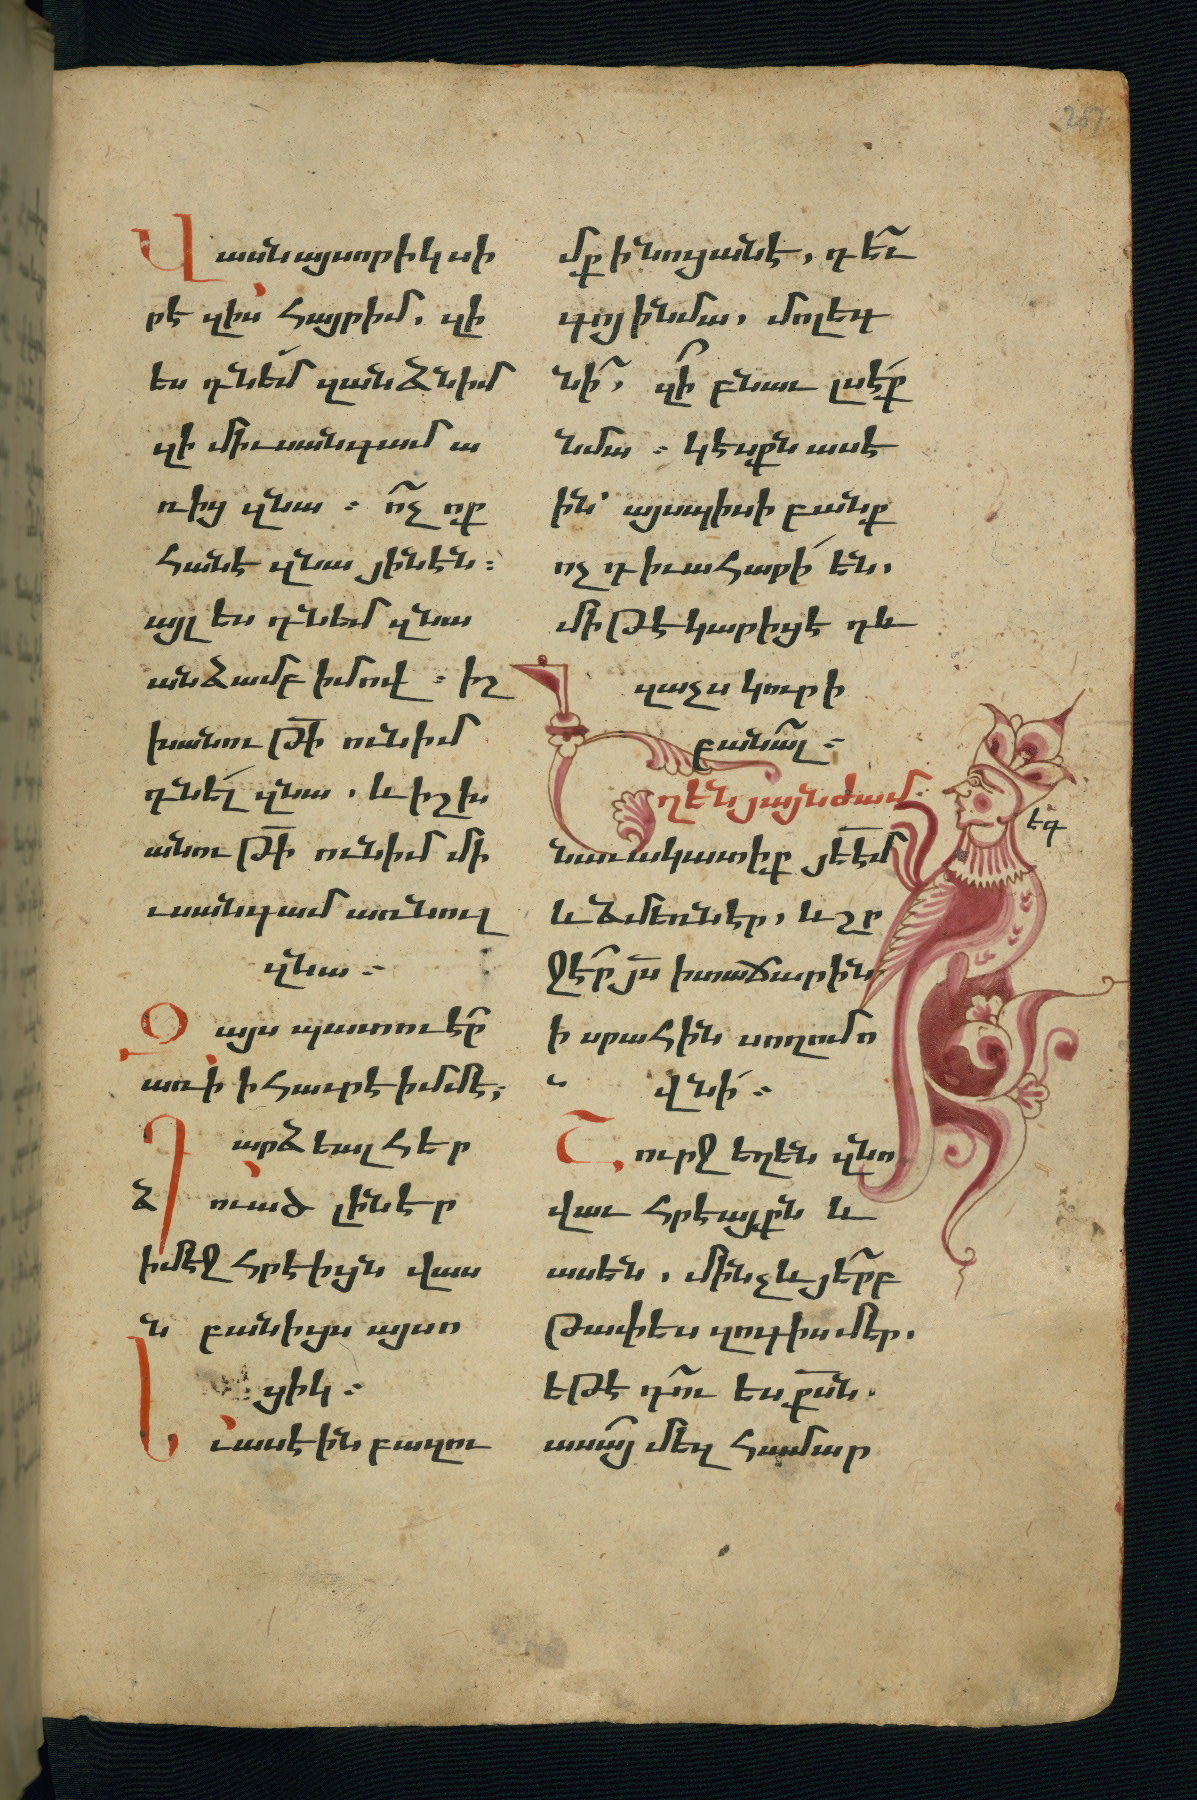 Վասն այսորիկ սի
րէ զիս հայր իմ. զի
ես դնեմ զանձն իմ
զի միւսանգամ ա
ռից զնա ։ ո՛չ ոք
հանէ զնա յինէն ։
այլ ես դնեմ զնա
անձամբ իմով ։ իշ
խանութի ունիմ
դնել զնա, և իշխ
անութի ունիմ մի
ւսանգամ առնուլ
զնա ։
Զայս պատուէր
առի ի հաւրէ իմմէ ։
Դարձեալ հեր
ձուած լինէր
ի մէջ հրէիցն վաս
ն բանիցս այսո
ցիկ ։
Եւ ասէին բազու
մք ի նոցանէ, դեւ
գոյ ի նմա, մոլեգ
նի, զի՞ բնաւ լսէք
նմա ։ կէսքն ասէ
ին՝ այսպիսի բանք
ոչ դիւահարի են.
մի թէ կարիցէ դև
զաչս կուրի
բանալ ։
Եղեն յայնժամ
նաւակատիք յեէմ
և ձմեռներ, և շր
ջէր յս ի տաճարին
ի սրահին սողոմո
վնի ։
Շուրջ եղեն զնո
վաւ հրեայքն և
ասեն, մինչև յերբ
թափես զոգիս մեր.
եթէ դու ես քսն.
ասայ մեզ համար